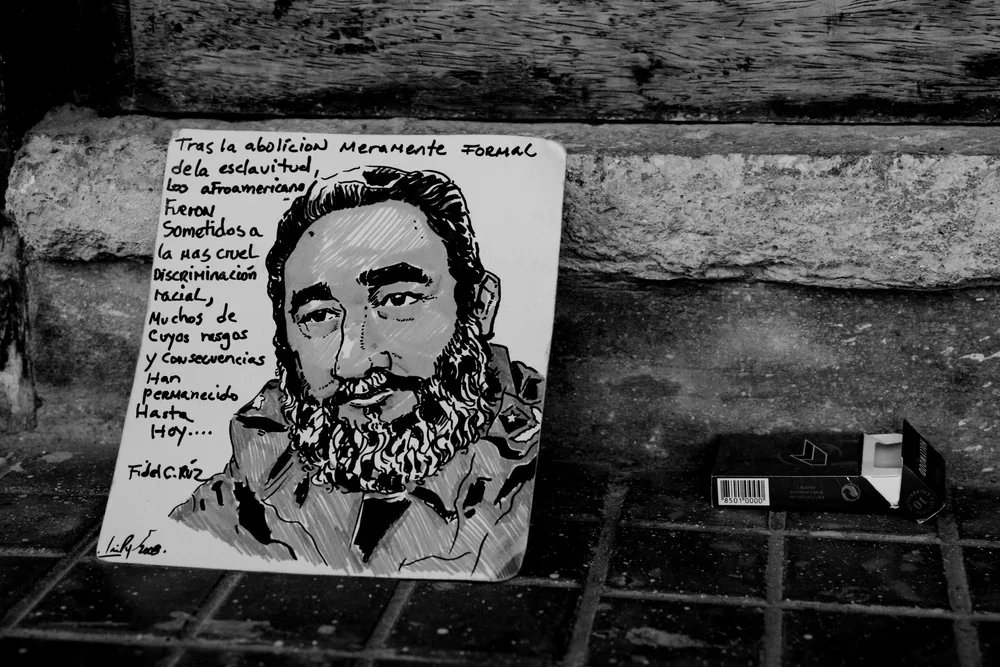 Tras la abolicion Meramente FORMAL
de la esclavitud,
los afroamericano
Fueron
Sometidos a
la mas cruel
Discriminación
racial,
Muchos de
Cuyos rasgos
y Consecuencias
Han
permanecido
Hasta
Hoy....
Fidel C. Rúz
8501 0000